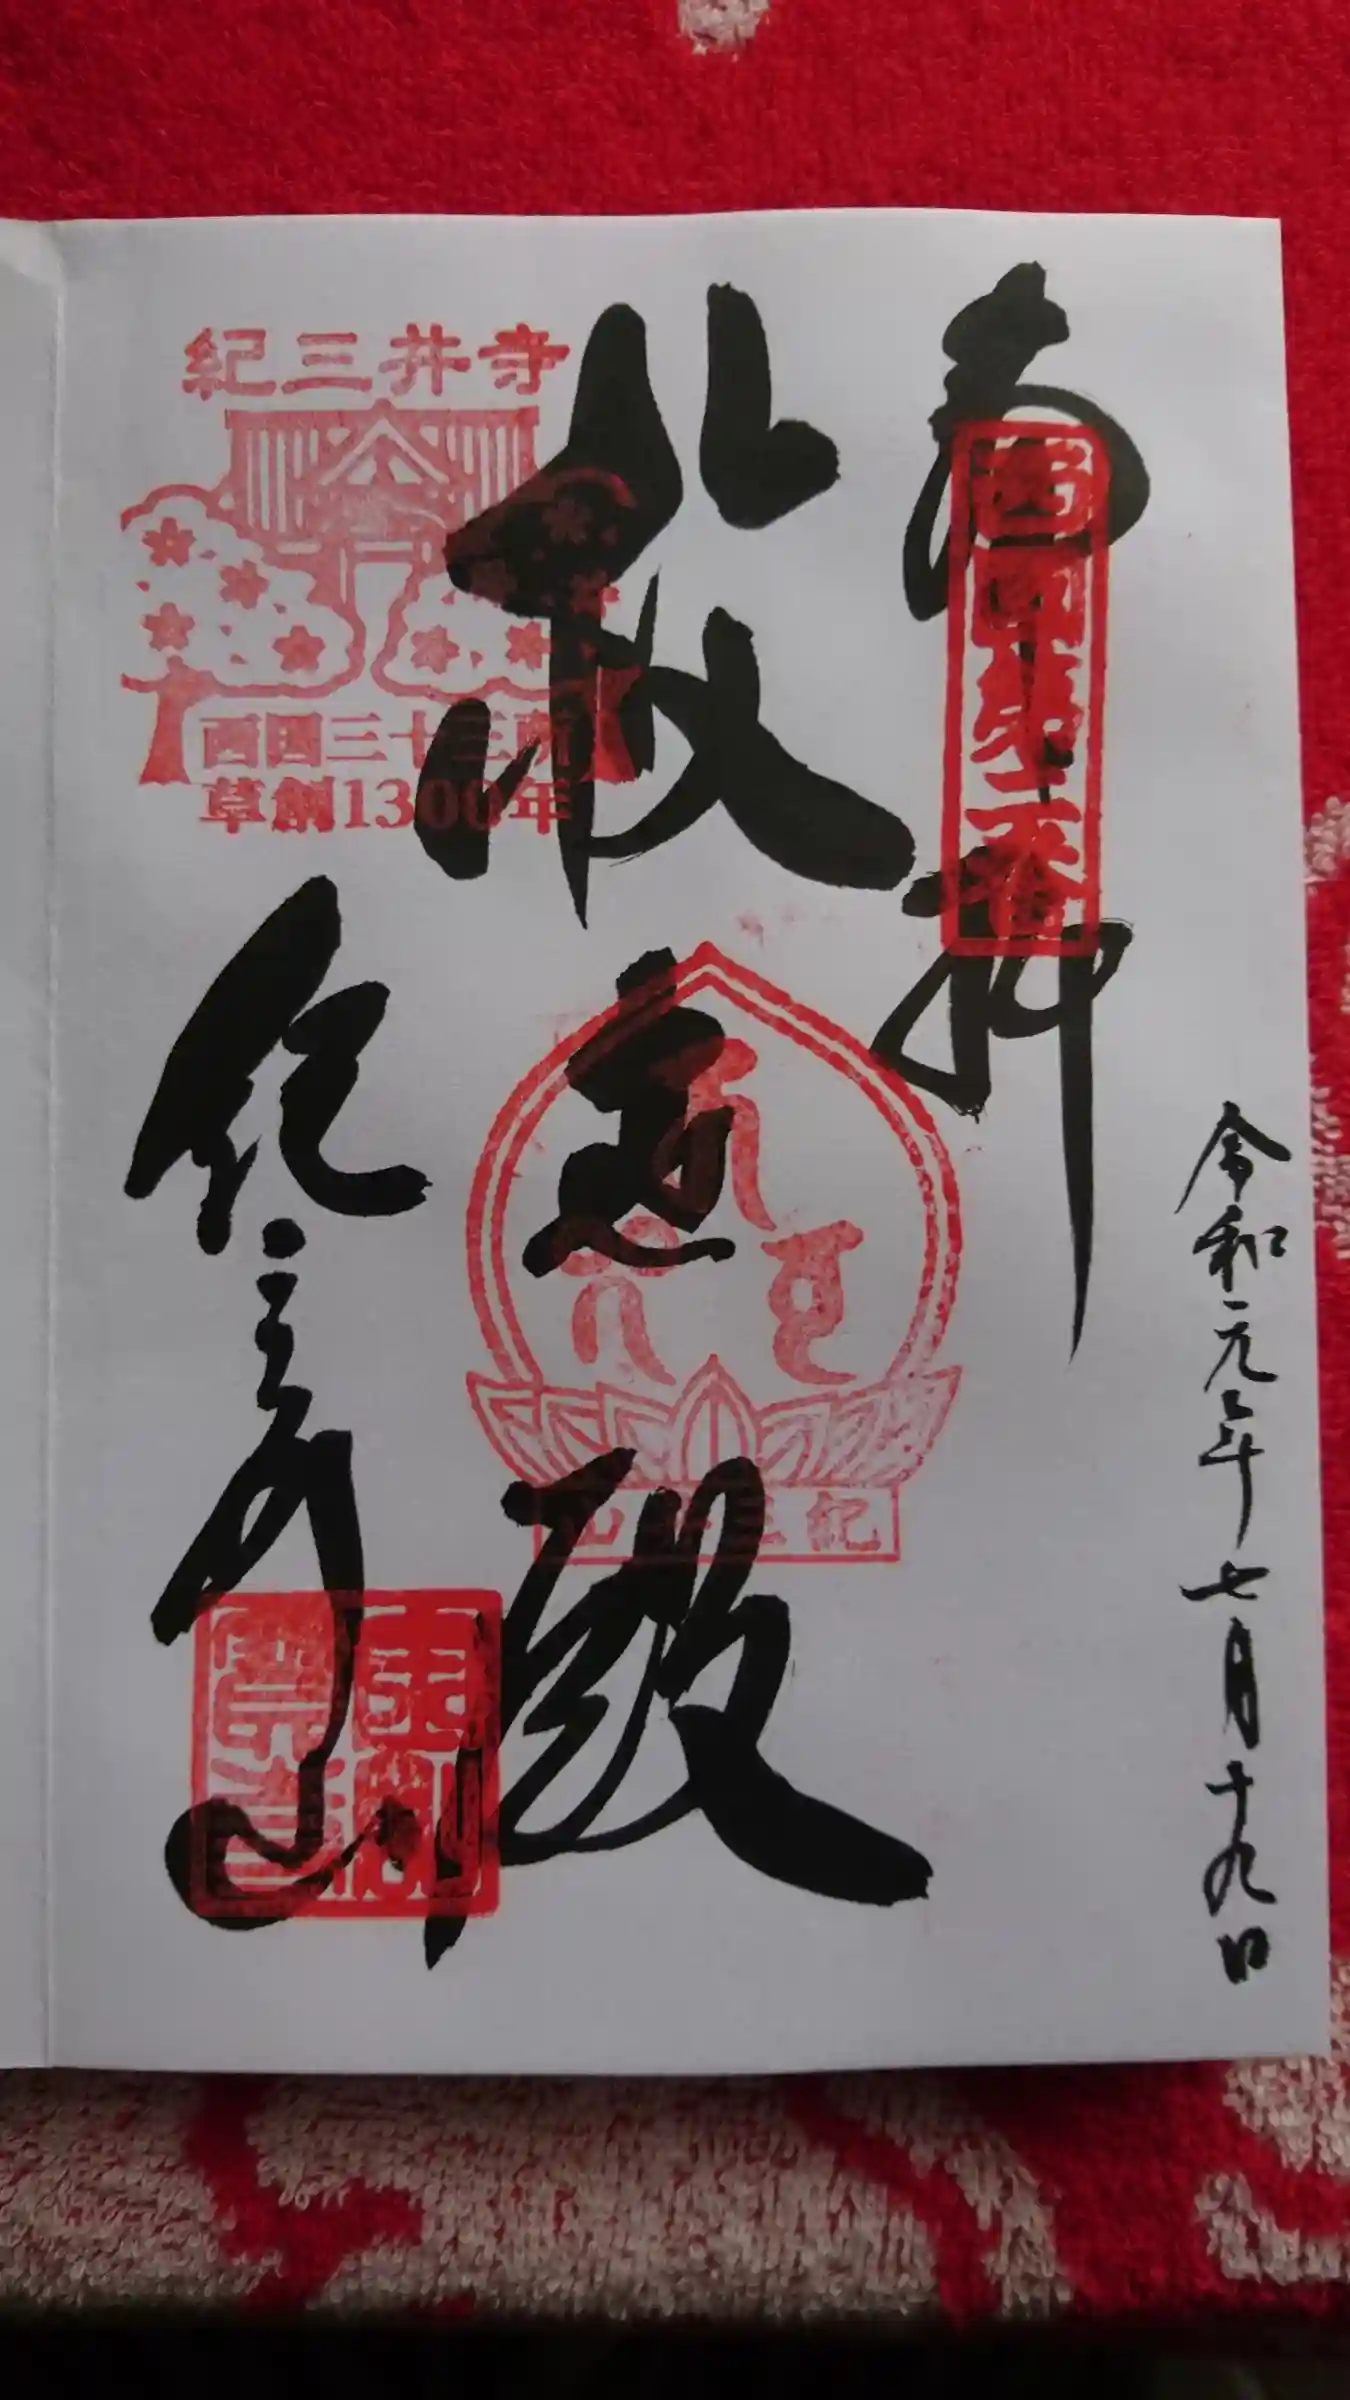 令和元年七月十九日
奉拝
西国第二番
救世殿
紀三井山
紀三井寺
西国三十三所
草創1300年
紀三井寺